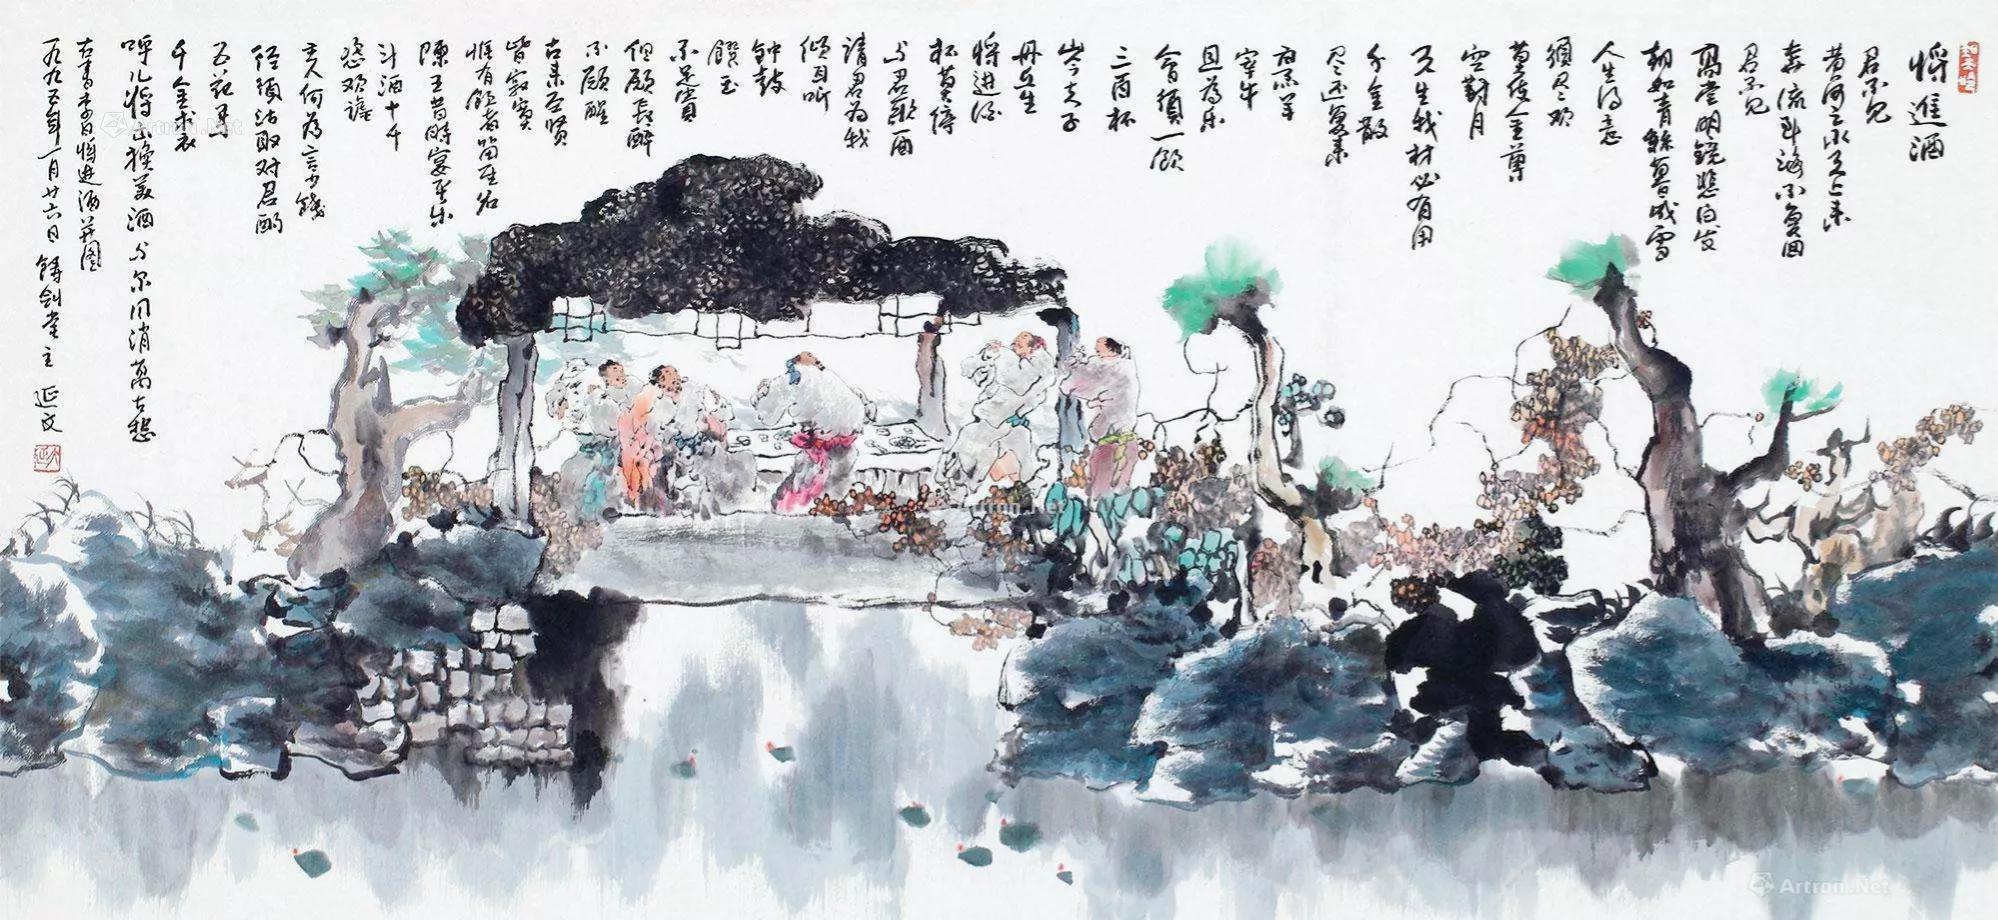 将進酒
君不见
黄河之水天上来
奔流到海不复回
君不见
高堂明镜悲白发
朝如青絲暮成雪
人生得意
须尽欢
莫使金尊
空對月
天生我材必有用
千金散
尽还复来
烹羊
宰牛
且为乐
会须一饮
三百杯
岑夫子
丹丘生
将进酒
杯莫停
与君歌一曲
请君为我
倾耳听
钟鼓
饌玉
不足貴
但願长醉
不願醒
古来圣贤
皆寂寞
惟有飲者留其名
陳王昔時宴平乐
斗酒十千
恣欢谑
主人何為言少钱
径须沽取对君酌
五花马
千金裘
呼儿将出换美酒与尔同消萬古愁
右书李白将进酒并图
一九九五年一月廿六日 鑄剑堂主 延文
Artron.Net